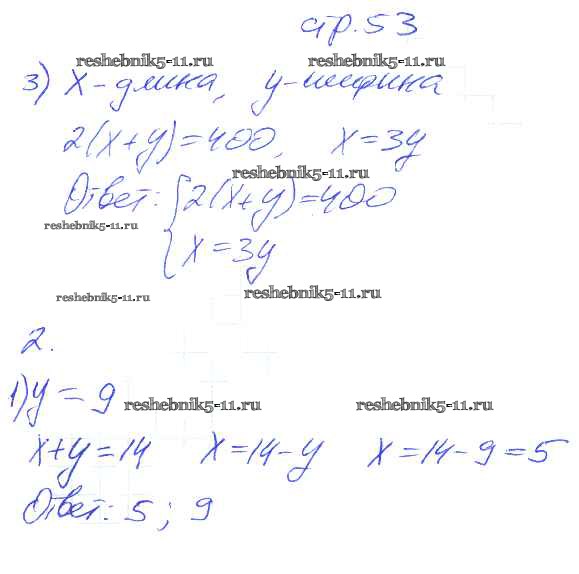 стр. 53
reshebnik5-11.ru
3) x - длина, y - ширина
2(x+y)=400, x=3y
reshebnik5-11.ru
Ответ: {2(x+y)=400
reshebnik5-11.ru
x=3y
reshebnik5-11.ru reshebnik5-11.ru
2.
1) y = 9
reshebnik5-11.ru reshebnik5-11.ru
x+y=14 x=14-y x=14-9=5
Ответ: 5; 9